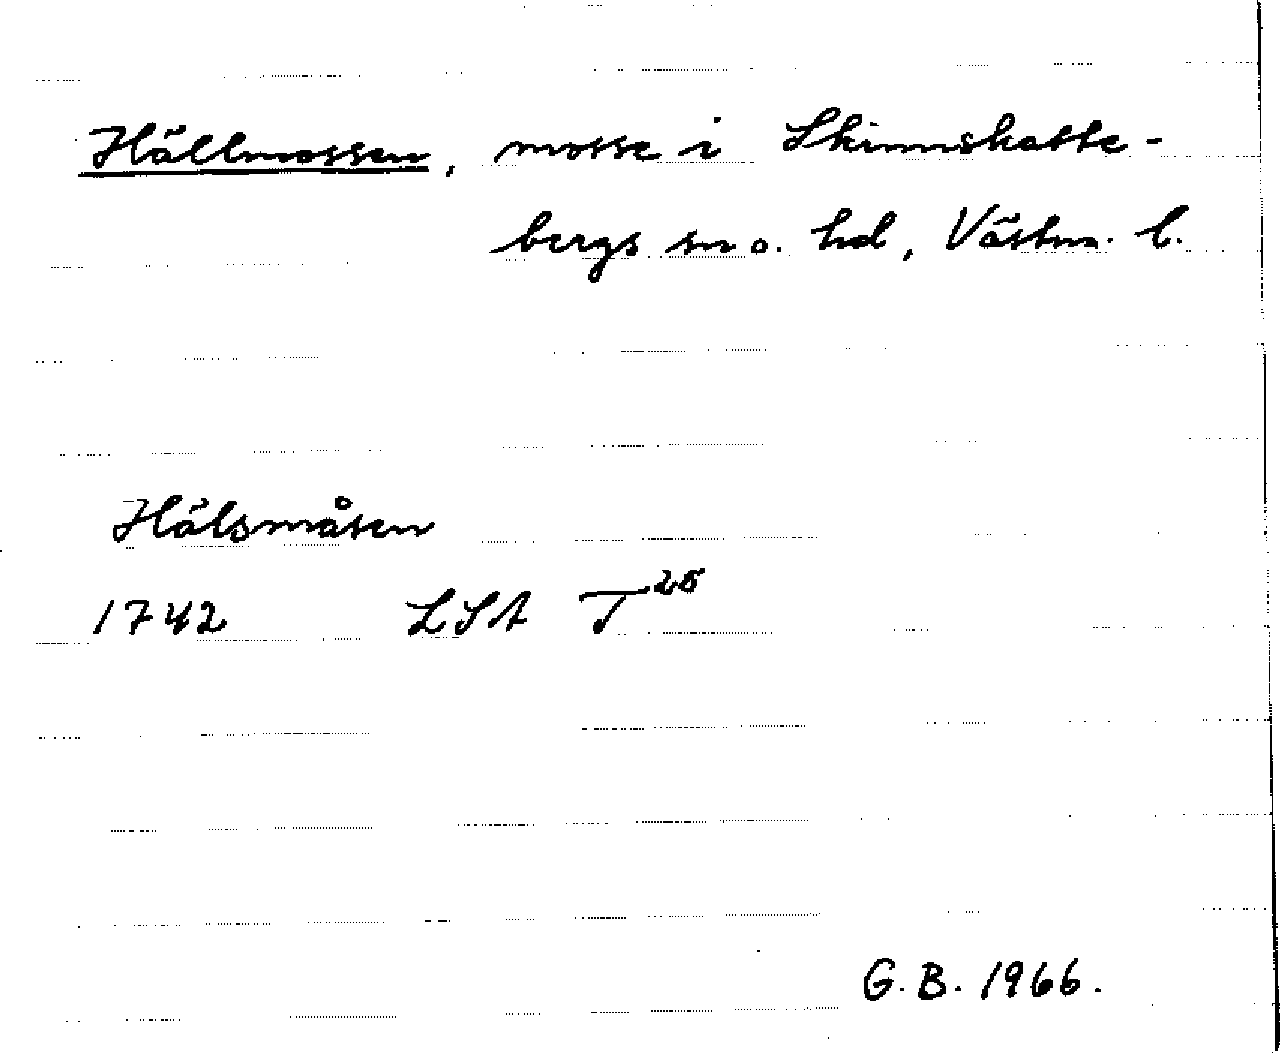 Hällmossen, mosse i Skinnskatte-
bergs sn o. hd, Västm. l.
Hälsmåsen
1742 LSA T²⁵
G.B. 1966.